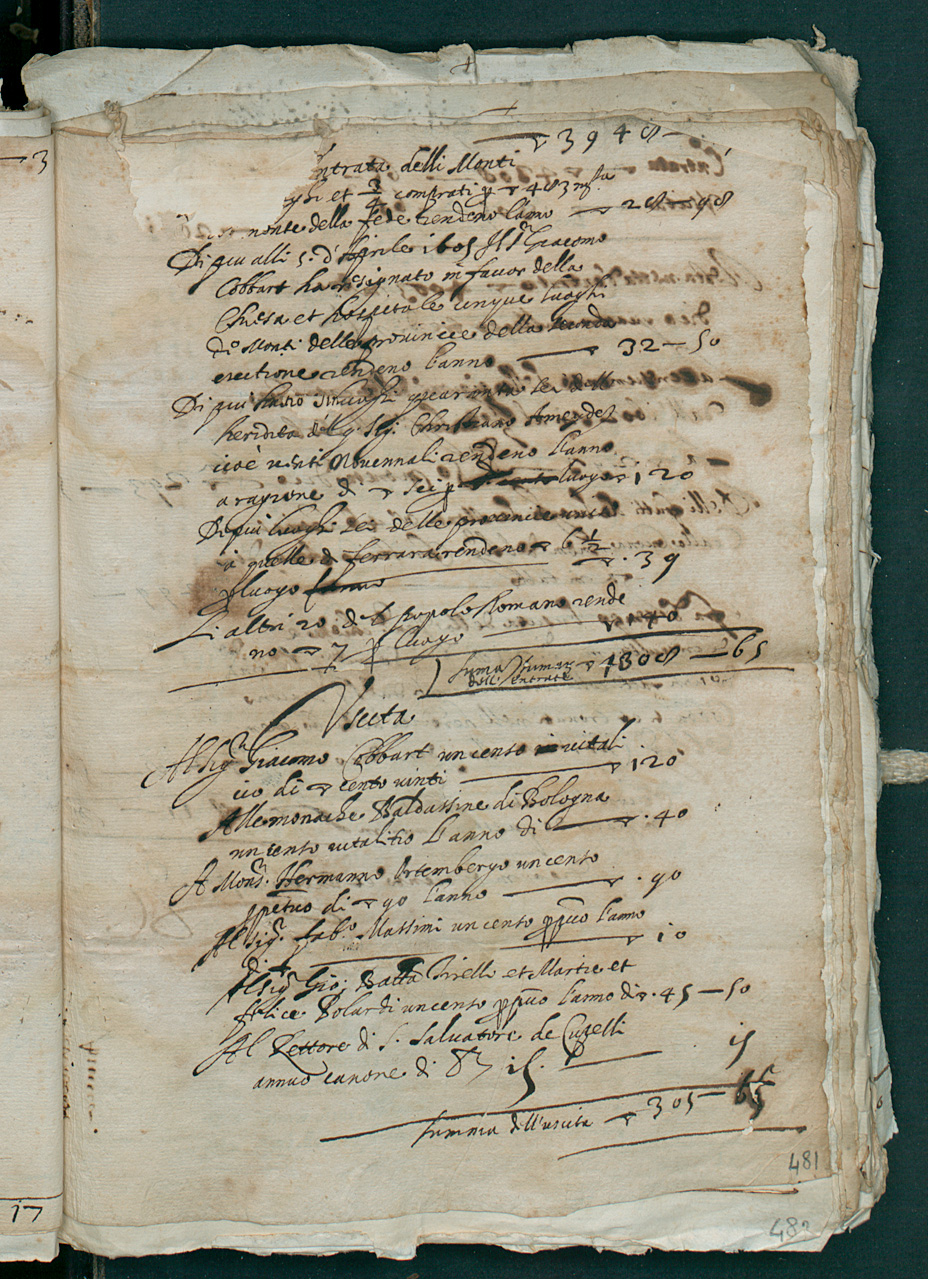 ▽ 3948
ntrata delli Monti
ghi et 3/4 comprati p ▽ 483 m.ta
monte della fede rendeno l'anno — 28 — 98
Di piu alli 5. d'Aprile 1605 Il s.r Giacomo
Cobbart ha resignato in favor della
Chiesa et hospitale cinque luoghi
di Monti delle provincie della seconda
erectione rendeno l'anno — 32 — 50
Di piu luoghi della
heredita del q. Sig. Christiano
cioè vinti Novennali rendeno l'anno
a ragione di ▽ sei p luogo ▽ 120
Di piu luoghi sei delle provincie
à quelle di ferrara rendeno ▽ 6 1/2
p luogo ▽ . 39
Li altri 20 del Popolo Romano rende
no ▽ 7 p luogo ▽ 140
summa dell' entrate ▽ 1308 — 65
Uscita
Al Sig.r Giacomo Cobbart un cento vitali
cio di ▽ cento vinti ▽ 120
Alle monache Baldassine di Bologna
un cento vitalitio l'anno di ▽ . 40
A Mons.r Hermanno Ortembergo un cento
ppetuo di ▽ 90 l'anno ▽ . 90
Al sig.r fab.o Massimi un cento ppuo l'anno
di ▽ 10
Al sig.r Gio: Batta Tirelli et Martie et
felice Bolardi un cento ppuo l'anno di ▽ . 45 — 50
Al Rettore di S. Salvatore de Cupelli
annuo canone di 15. 15
Summa dell'uscita ▽ 305 — 65
3
17
481
482